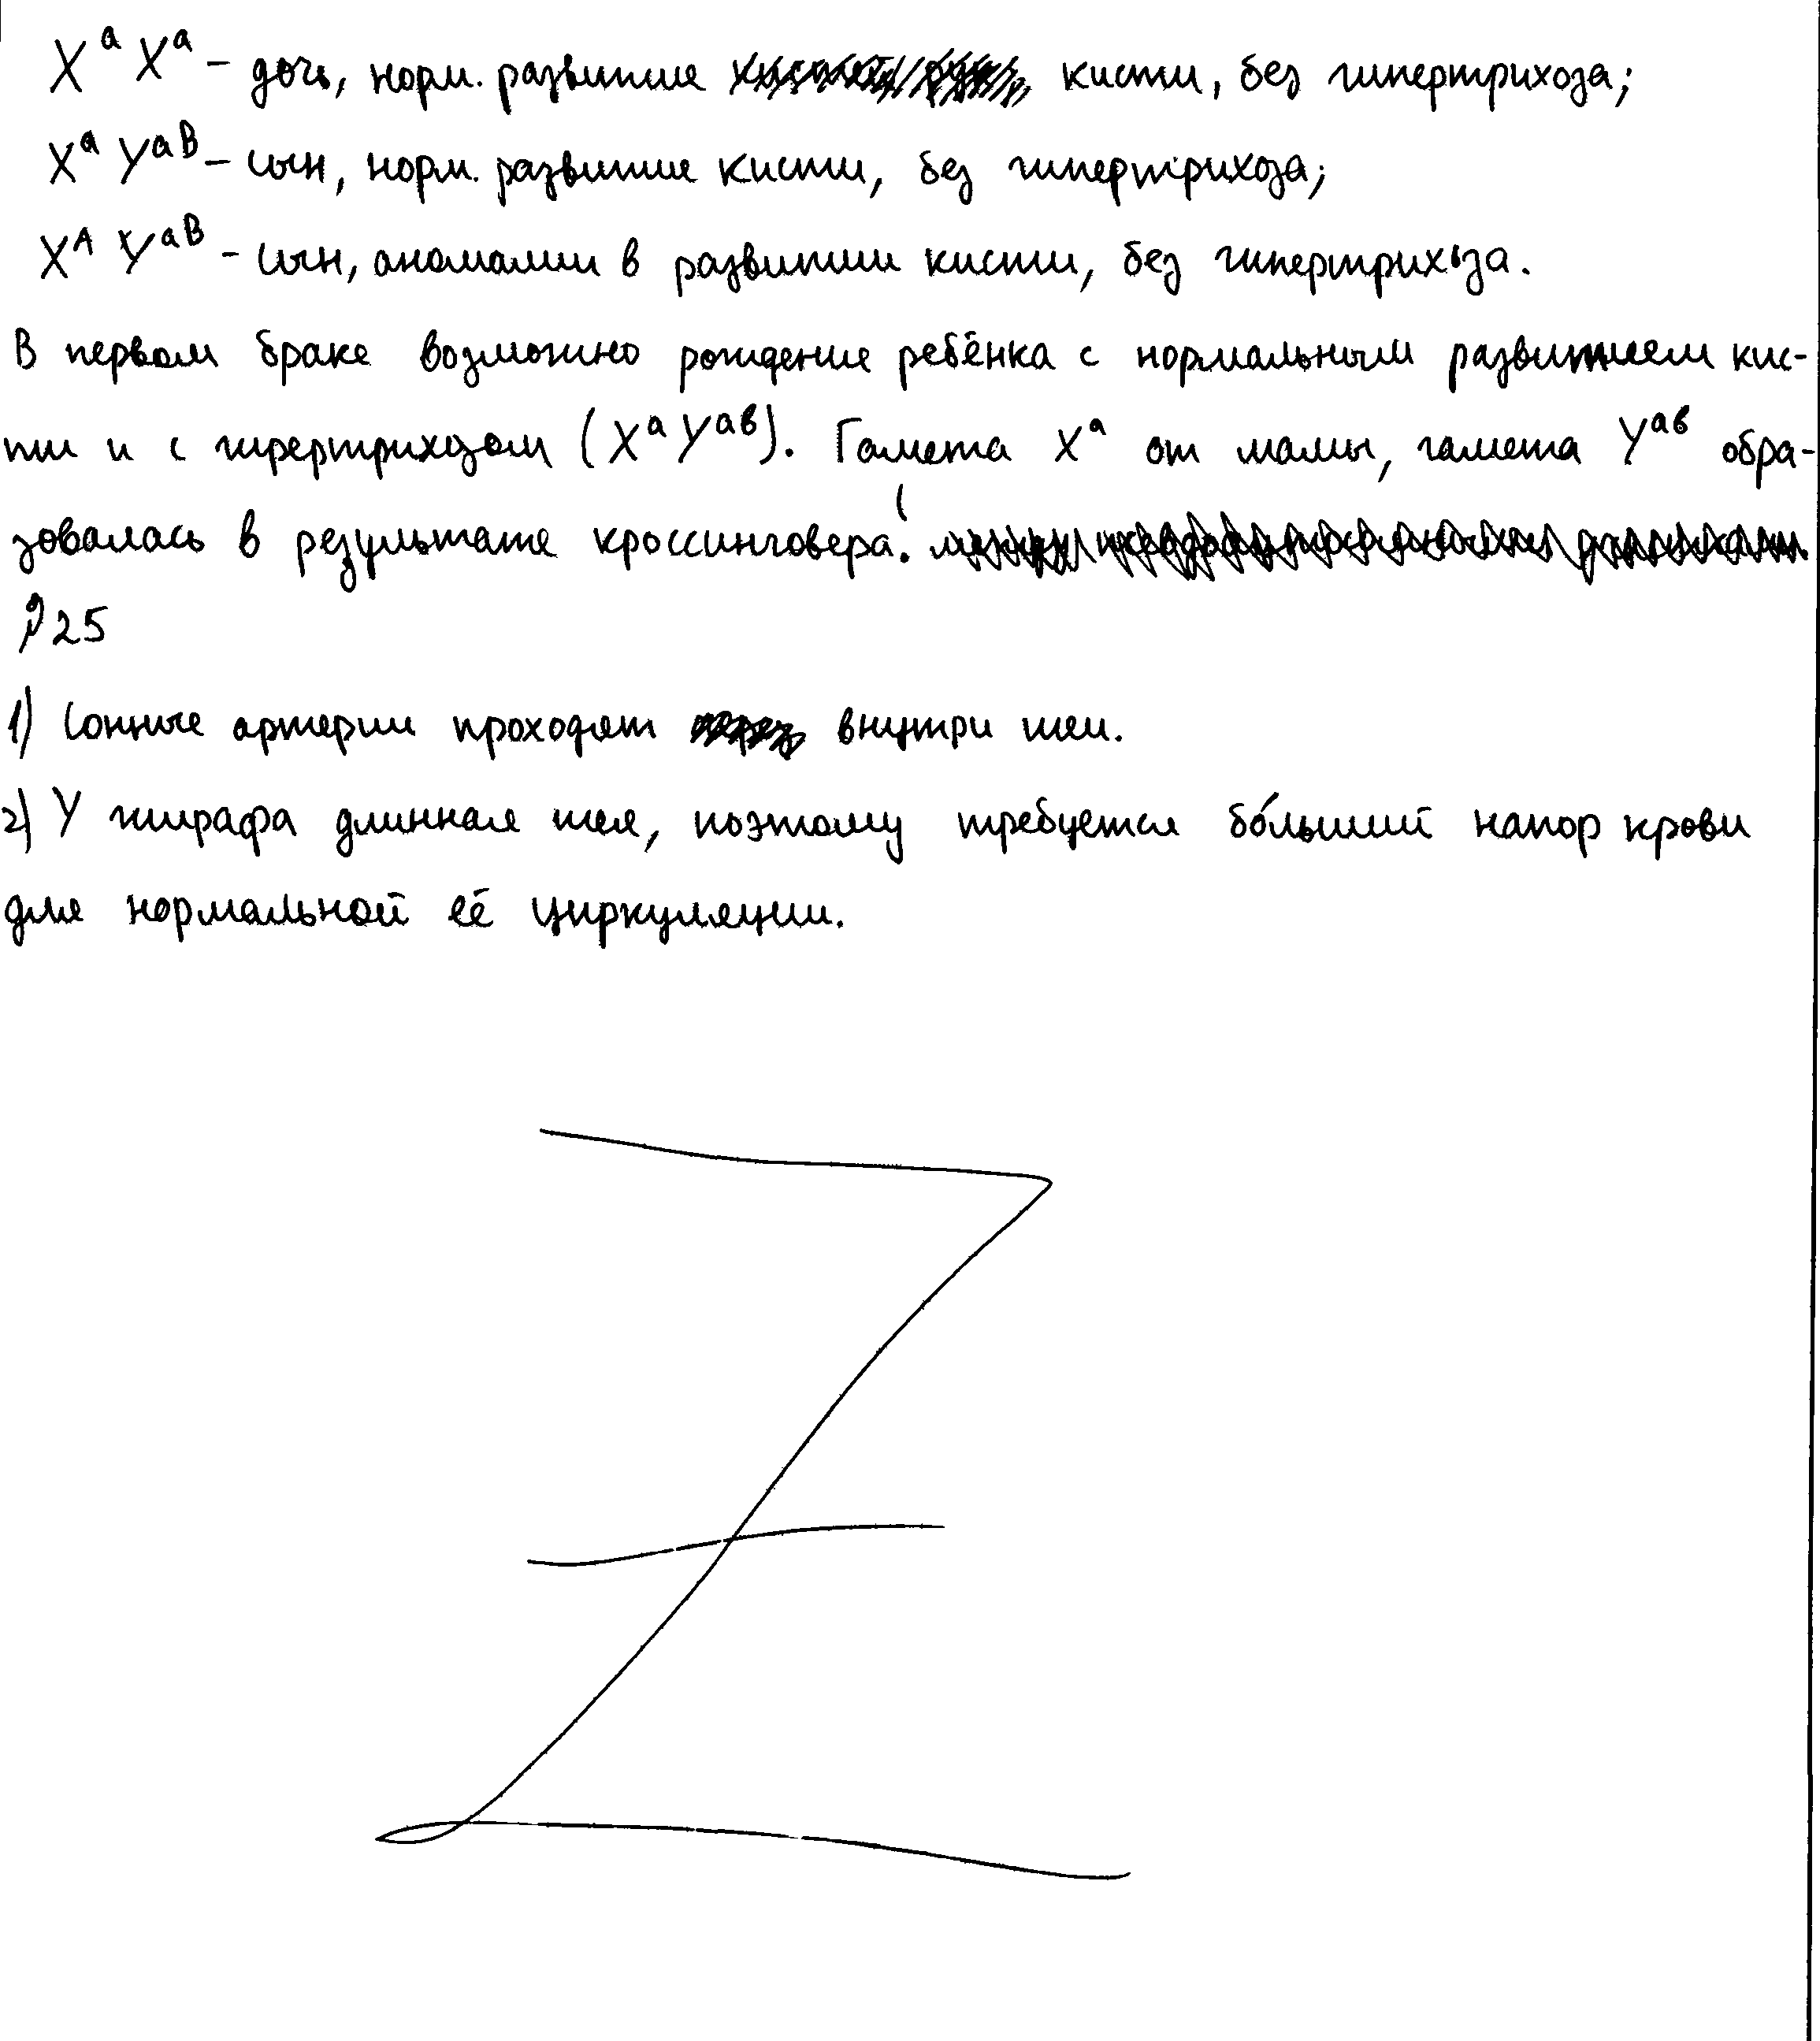 X^a X^a – дочь, норм. развитие кисти, без гипертрихоза;
X^a Y^aB – сын, норм. развитие кисти, без гипертрихоза;
X^A Y^aB – сын, аномалии в развитии кисти, без гипертрихоза.
В первом браке возможно рождение ребёнка с нормальным развитием кис-
ти и с гирертрихзом (X^a Y^ab). Гамета X^a от мамы, гамета Y^ab обра-
зовалась в результате кроссинговера.
№25
1) Сонные артерии проходят внутри шеи.
2) У жирафа длинная шея, поэтому требуется бо́льший напор крови
для нормальной её циркуляции.